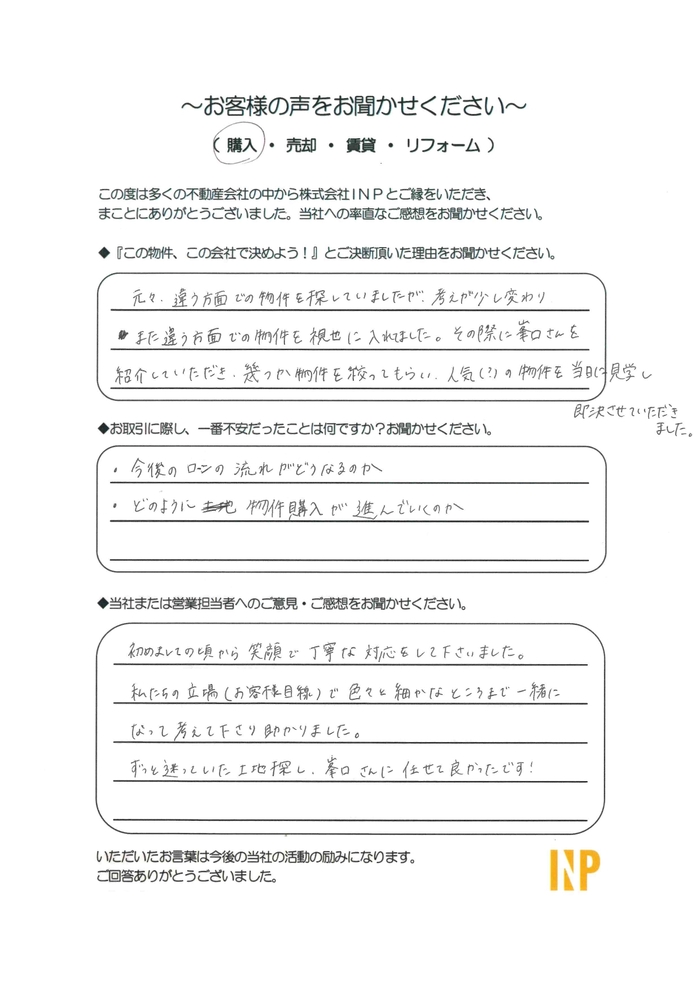 ～お客様の声をお聞かせください～
（ 購入 ・ 売却 ・ 賃貸 ・ リフォーム ）
この度は多くの不動産会社の中から株式会社ＩＮＰとご縁をいただき、
まことにありがとうございました。当社への率直なご感想をお聞かせください。
◆『この物件、この会社で決めよう！』とご決断頂いた理由をお聞かせください。
元々、違う方面での物件を探していましたが、考えが少し変わり
また違う方面での物件を視世に入れました。その際に峯口さんを
紹介していただき、幾つか物件を絞ってもらい、人気(?)の物件を当日に見学し
即決させていただき
ました。
◆お取引に際し、一番不安だったことは何ですか？お聞かせください。
・今後のローンの流れがどうなるのか
・どのように 土地 物件購入が進んでいくのか
◆当社または営業担当者へのご意見・ご感想をお聞かせください。
初めましての頃から笑顔で丁寧な対応をして下さいました。
私たちの立場(お客様目線)で色々と細かなところまで一緒に
なって考えて下さり助かりました。
ずっと迷っていた土地探し、峯口さんに任せて良かったです！
いただいたお言葉は今後の当社の活動の励みになります。
ご回答ありがとうございました。
INP